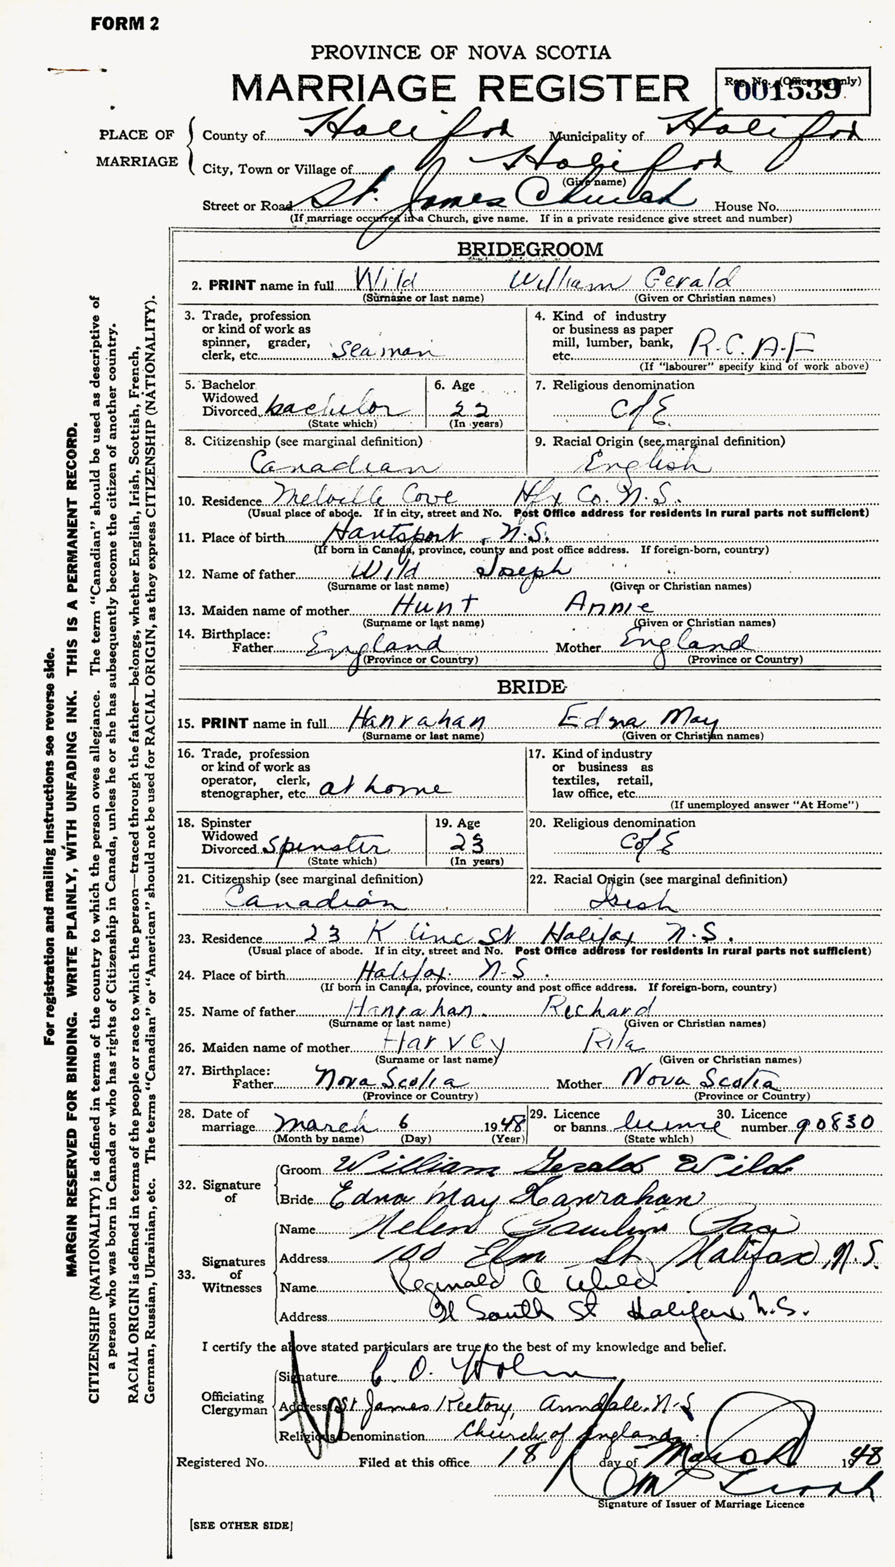 FORM 2
PROVINCE OF NOVA SCOTIA
MARRIAGE REGISTER
Reg. No. (Office use only)
001539
PLACE OF MARRIAGE
County of Halifax Municipality of Halifax
City, Town or Village of Halifax
(Give name)
Street or Road St. James Church House No.
(If marriage occurred in a Church, give name. If in a private residence give street and number)
BRIDEGROOM
2. PRINT name in full Wild William Gerald
(Surname or last name) (Given or Christian names)
3. Trade, profession or kind of work as spinner, grader, clerk, etc. seaman
4. Kind of industry or business as paper mill, lumber, bank, etc. R.C.A.F
(If "labourer" specify kind of work above)
5. Bachelor Widowed Divorced bachelor
(State which)
6. Age 22
(In years)
7. Religious denomination C of E
8. Citizenship (see marginal definition) Canadian
9. Racial Origin (see marginal definition) English
10. Residence Melville Cove Hfx Co. N.S.
(Usual place of abode. If in city, street and No. Post Office address for residents in rural parts not sufficient)
11. Place of birth Hantsport, N.S.
(If born in Canada, province, county and post office address. If foreign-born, country)
12. Name of father Wild Joseph
(Surname or last name) (Given or Christian names)
13. Maiden name of mother Hunt Annie
(Surname or last name) (Given or Christian names)
14. Birthplace: Father England Mother England
(Province or Country) (Province or Country)
BRIDE
15. PRINT name in full Hanrahan Edna May
(Surname or last name) (Given or Christian names)
16. Trade, profession or kind of work as operator, clerk, stenographer, etc. at home
17. Kind of industry or business as textiles, retail, law office, etc.
(If unemployed answer "At Home")
18. Spinster Widowed Divorced Spinster
(State which)
19. Age 23
(In years)
20. Religious denomination C of E
21. Citizenship (see marginal definition) Canadian
22. Racial Origin (see marginal definition) Irish
23. Residence 23 Kline St Halifax N.S.
(Usual place of abode. If in city, street and No. Post Office address for residents in rural parts not sufficient)
24. Place of birth Halifax N.S.
(If born in Canada, province, county and post office address. If foreign-born, country)
25. Name of father Hanrahan Richard
(Surname or last name) (Given or Christian names)
26. Maiden name of mother Harvey Rita
(Surname or last name) (Given or Christian names)
27. Birthplace: Father Nova Scotia Mother Nova Scotia
(Province or Country) (Province or Country)
28. Date of marriage March 6 1948
(Month by name) (Day) (Year)
29. Licence or banns license
(State which)
30. Licence number 90830
32. Signature of
Groom William Gerald Wild
Bride Edna May Hanrahan
33. Signatures of Witnesses
Name Helen Pauline
Address 100 Elm St Halifax, N.S.
Name Reginald A Wild
Address South St Halifax N.S.
I certify the above stated particulars are true to the best of my knowledge and belief.
Officiating Clergyman
Signature C. O. Holm
Address St James Rectory, Armdale, N.S
Religious Denomination Church of England
Registered No. Filed at this office 18 day of March 1948
Signature of Issuer of Marriage Licence
[SEE OTHER SIDE]
For registration and mailing instructions see reverse side.
MARGIN RESERVED FOR BINDING. WRITE PLAINLY, WITH UNFADING INK. THIS IS A PERMANENT RECORD.
CITIZENSHIP (NATIONALITY) is defined in terms of the country to which the person owes allegiance. The term "Canadian" should be used as descriptive of
a person who was born in Canada or who has rights of Citizenship in Canada, unless he or she has subsequently become the citizen of another country.
RACIAL ORIGIN is defined in terms of the people or race to which the person—traced through the father—belongs, whether English, Irish, Scottish, French,
German, Russian, Ukrainian, etc. The terms "Canadian" or "American" should not be used for RACIAL ORIGIN, as they express CITIZENSHIP (NATIONALITY).